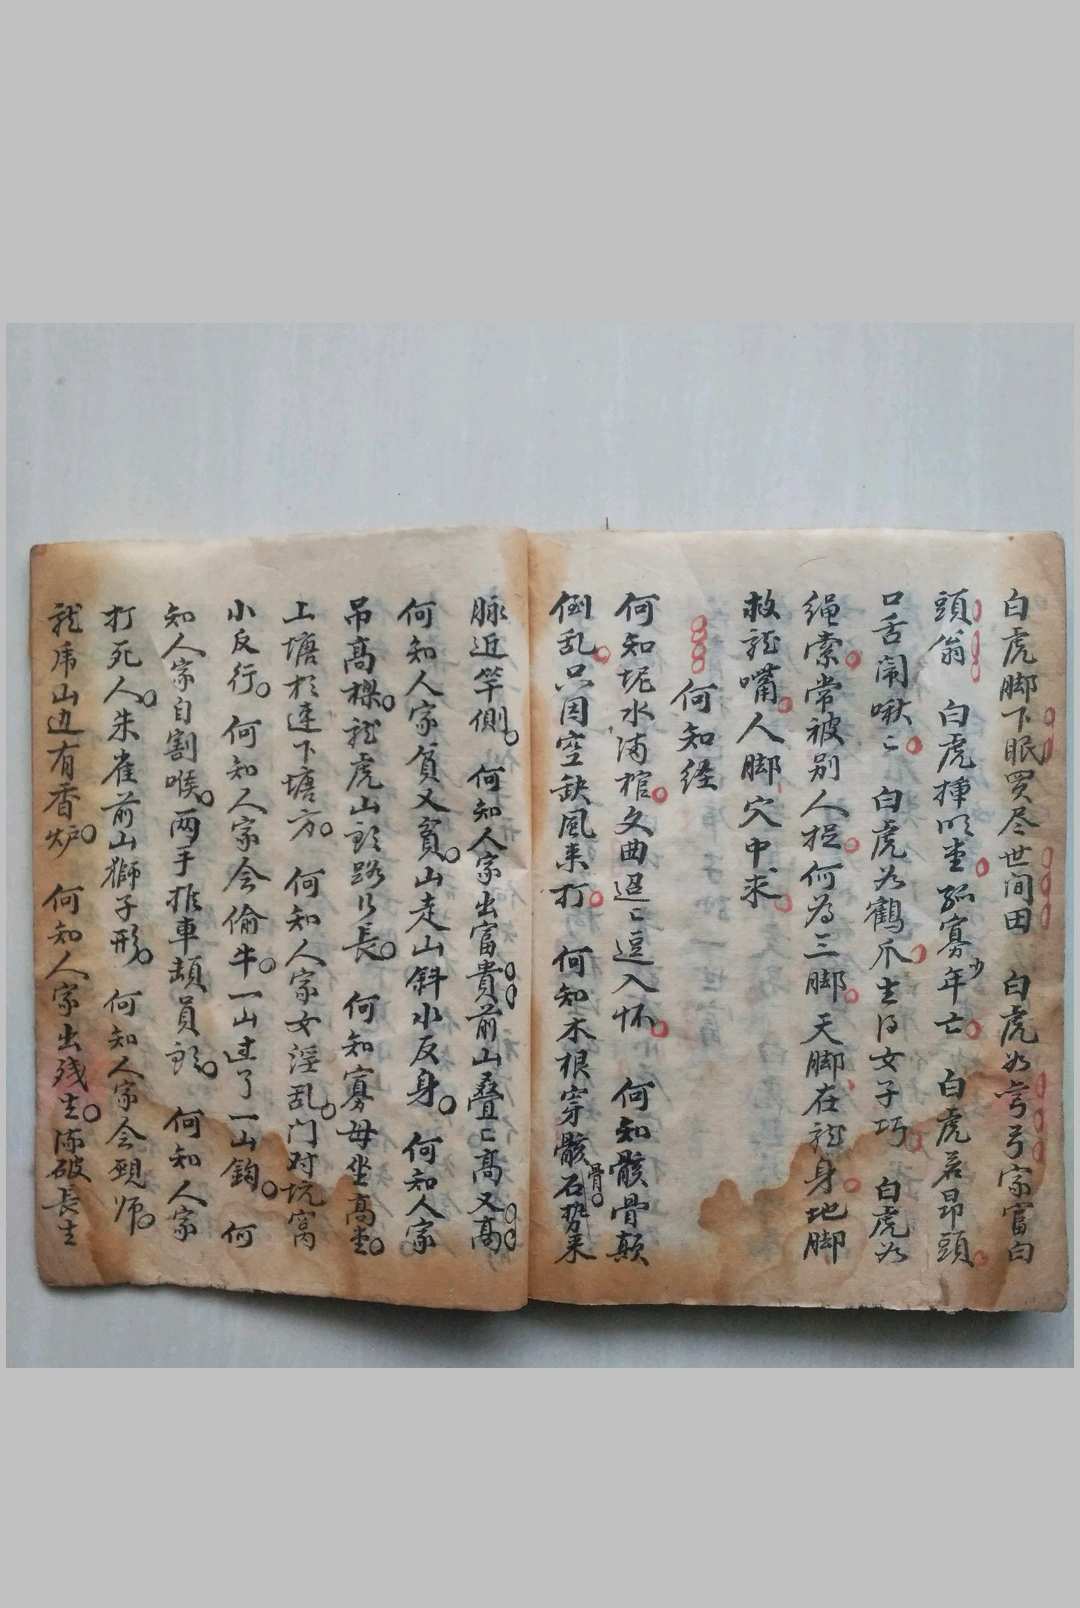 白虎脚下眠买尽世间田 白虎如弯弓家富白
頭翁 白虎捶明堂孤寡少年亡 白虎若昂頭
口舌闹啾〻 白虎如鶴爪生得女子巧 白虎如
绳索常被别人捉何为三脚天脚在龍身地脚
救龍嘴人脚穴中求
何知经
何知坭水满棺文曲迢〻逗入怀 何知骸骨颠
倒乱只因空缺風来打 何知木根穿骸骨石势来
脉近竿侧 何知人家出富貴前山叠〻高又高
何知人家貧又貧山走山斜水反身 何知人家
吊高樑龍虎山頭路行長 何知寡母坐高堂
上塘水速下塘方 何知人家女淫乱门对坑窝
小反行 何知人家会偷牛一山过了一山鈎 何
知人家自割喉两手推車頭員 何知人家
打死人朱雀前山獅子形 何知人家会師
龍虎山边有香炉 何知人家出残生破長生